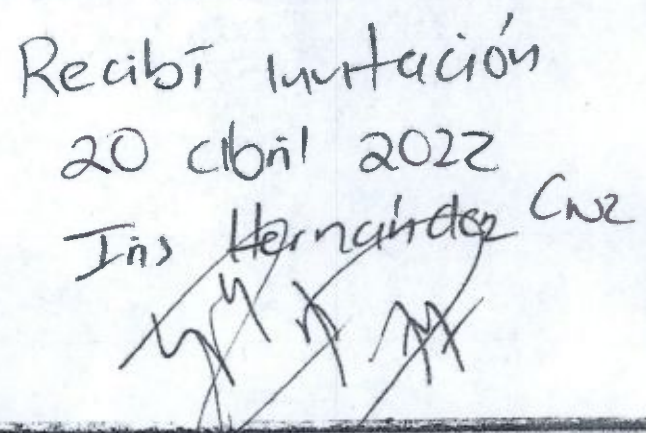 Recibí Invitación
20 abril 2022
Iris Hernández Cruz